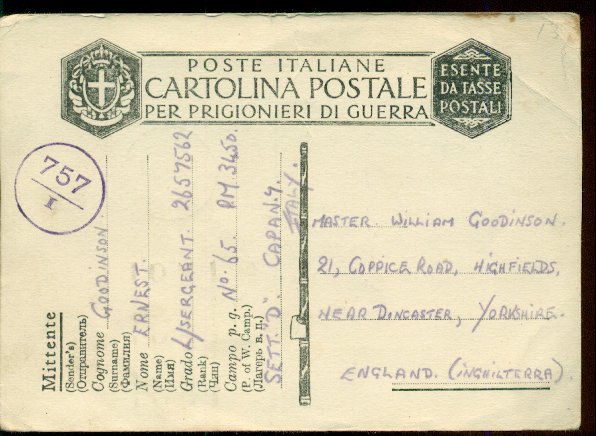 POSTE ITALIANE
CARTOLINA POSTALE
PER PRIGIONIERI DI GUERRA
ESENTE
DA TASSE
POSTALI
757
I
Mittente
(Sender's)
(Отправитель)
Cognome GOODINSON
(Surname)
(Фамилия)
Nome ERNEST.
(Name)
(Имя)
Grado L/SERGEANT. 2657562
(Rank)
(Чин)
Campo p. g. No. 65 PM 3450.
(P. of W. Camp.)
(Лагерь в. ц.)
SETT. "D". CAPAN. 4.
ITALY.
MASTER. WILLIAM GOODINSON.
21, COPPICE ROAD, HIGHFIELDS,
NEAR DINCASTER, YORKSHIRE.
ENGLAND. (INGHILTERRA)